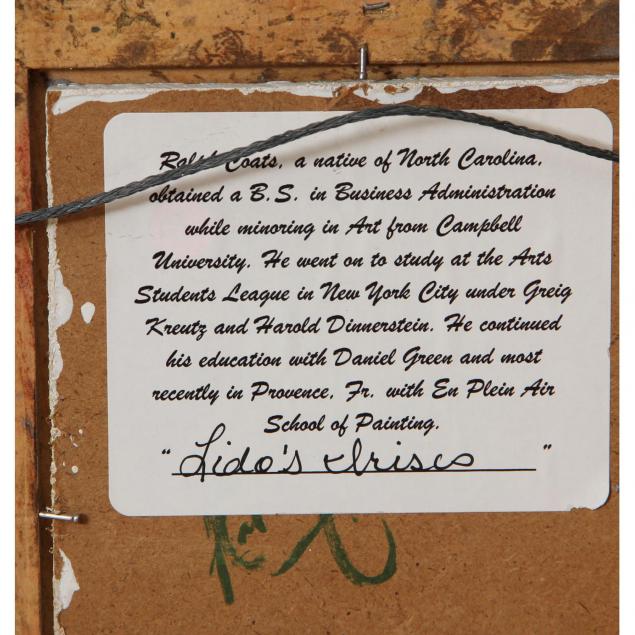 Ralph Coats, a native of North Carolina,
obtained a B.S. in Business Administration
while minoring in Art from Campbell
University. He went on to study at the Arts
Students League in New York City under Greig
Kreutz and Harold Dinnerstein. He continued
his education with Daniel Green and most
recently in Provence, Fr. with En Plein Air
School of Painting.
"Lido's Irises"